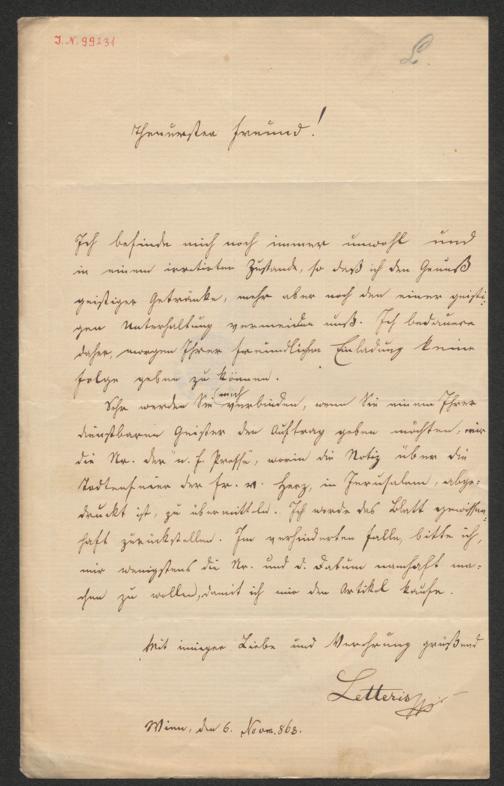 I. N. 99231
L.
Theuerster Freund!
Ich befinde mich noch immer unwohl und
in einem irritirten Zustande, so daß ich den Genuß
geistiger Getränke, mehr aber noch den einer geisti-
gen Unterhaltung vermeiden muß. Ich bedauere
daher, morgen Ihrer freundlichen Einladung keine
Folge geben zu können.
Sehr werden Sie mich verbinden, wenn Sie einem Ihrer
dienstbaren Geister den Auftrag geben möchten, mir
die Nr. der "n. f. Presse, worin die Notiz über die
Todtenfeier der Fr. v. Herz, in Jerusalem, abge-
druckt ist, zu übermitteln. Ich werde das Blatt gewissen-
haft zurückstellen. Im verhinderten Falle, bitte ich,
mir wenigstens die Nr. und d. Datum namhaft ma-
chen zu wollen, damit ich mir den Artikel kaufe.
Mit inniger Liebe und Verehrung grüßend
Letteris
Wien, den 6. Novm. 868.